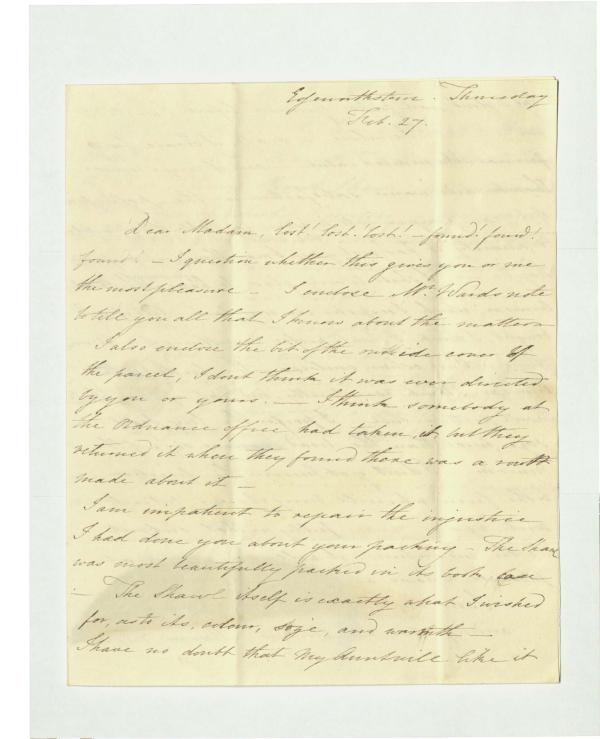 Edgeworthstown. Thursday
Feb. 27.
Dear Madam, lost! lost! lost! – found! found!
found! – I question whether this gives you or me
the most pleasure – I enclose Mr. Wards note
to tell you all that I know about the matter
I also enclose the bit of the outside cover of
the parcel, I dont think it was ever directed
by you or yours. — I think somebody at
the Ordnance office had taken it but they
returned it when they found there was a
made about it –
I am impatient to repair the injustice
I had done you about your packing – The Shawl
was most beautifully packed in its book case
– The Shawl itself is exactly what I wished
for, as to its, colour, size, and warmth –
I have no doubt that my Aunt will like it